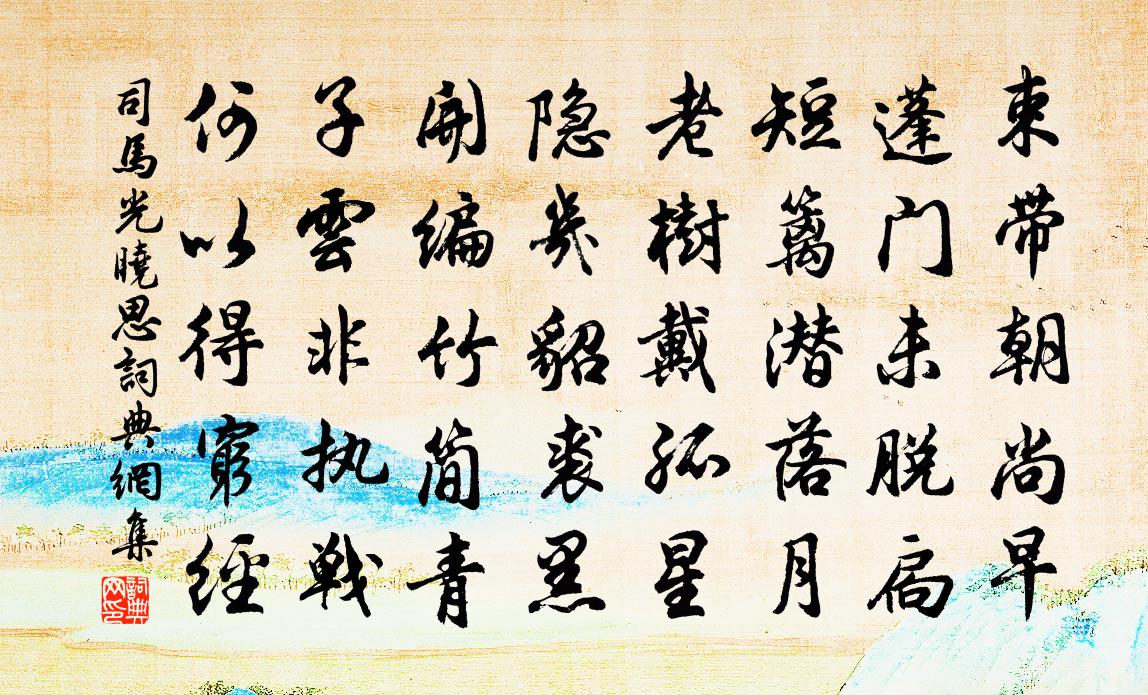 束带朝尚早
蓬门未脱扃
短篱潜落月
老樹戴孤星
隐幾貂裘黑
開编竹简青
子雲非执戦
何以得窮經
司馬光曉思詞典網集
詞典